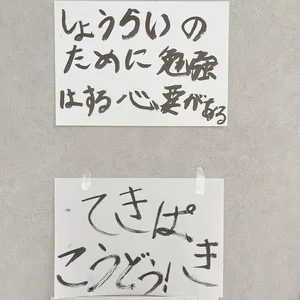 しょうらいの
ために勉強
はする心要がある
てきぱき
こうどう!